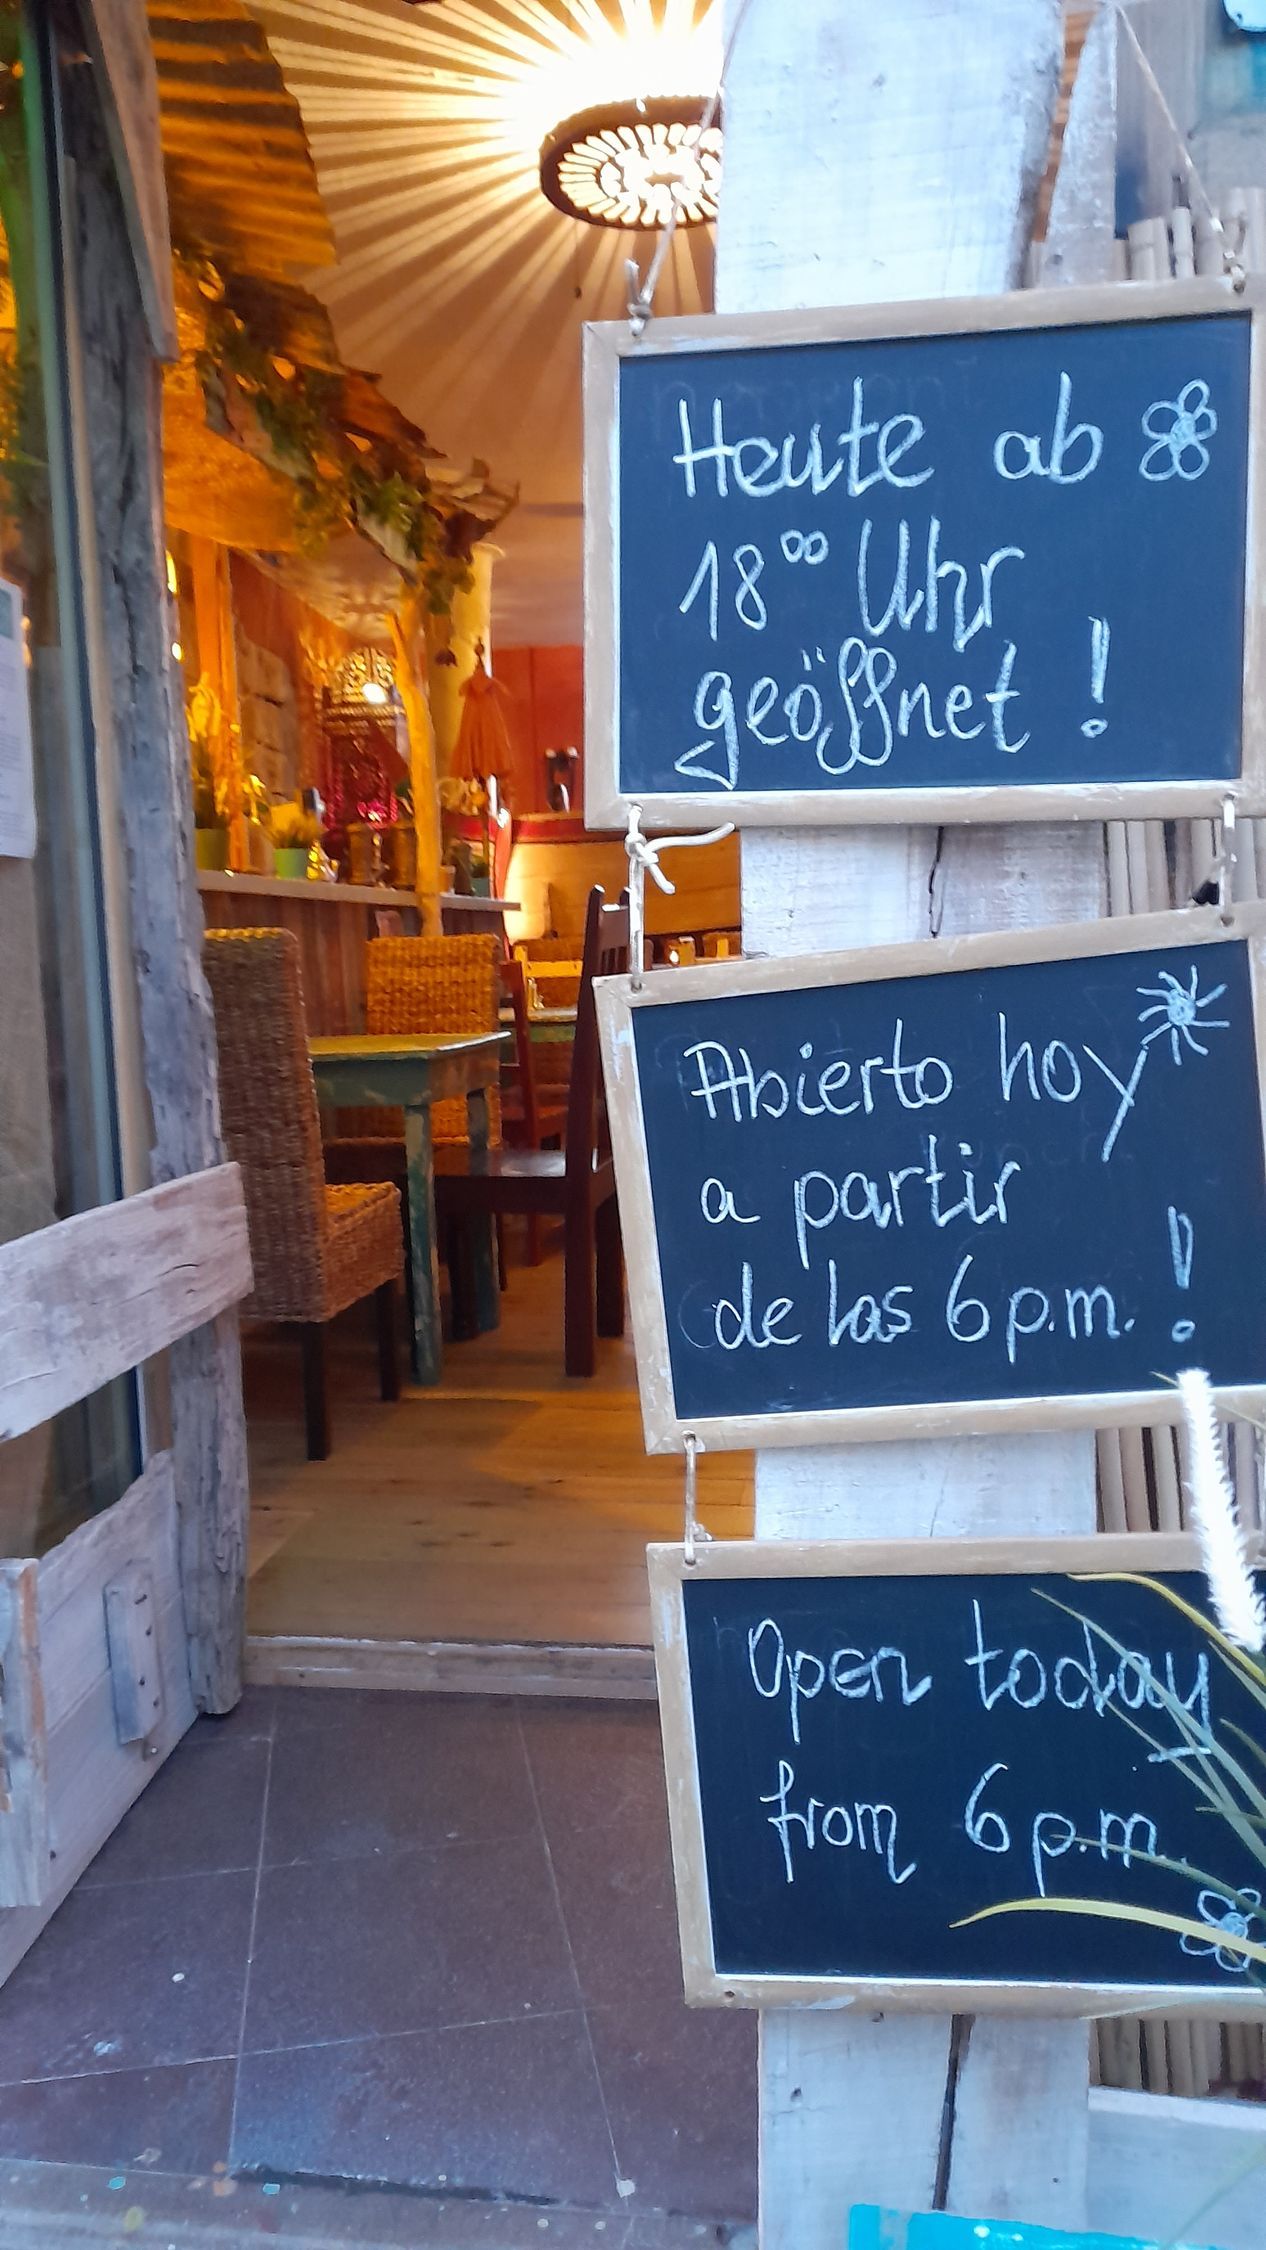 Heute ab
18⁰⁰ Uhr
geöffnet !
Abierto hoy
a partir
de las 6 p.m. !
Open today
from 6 p.m.